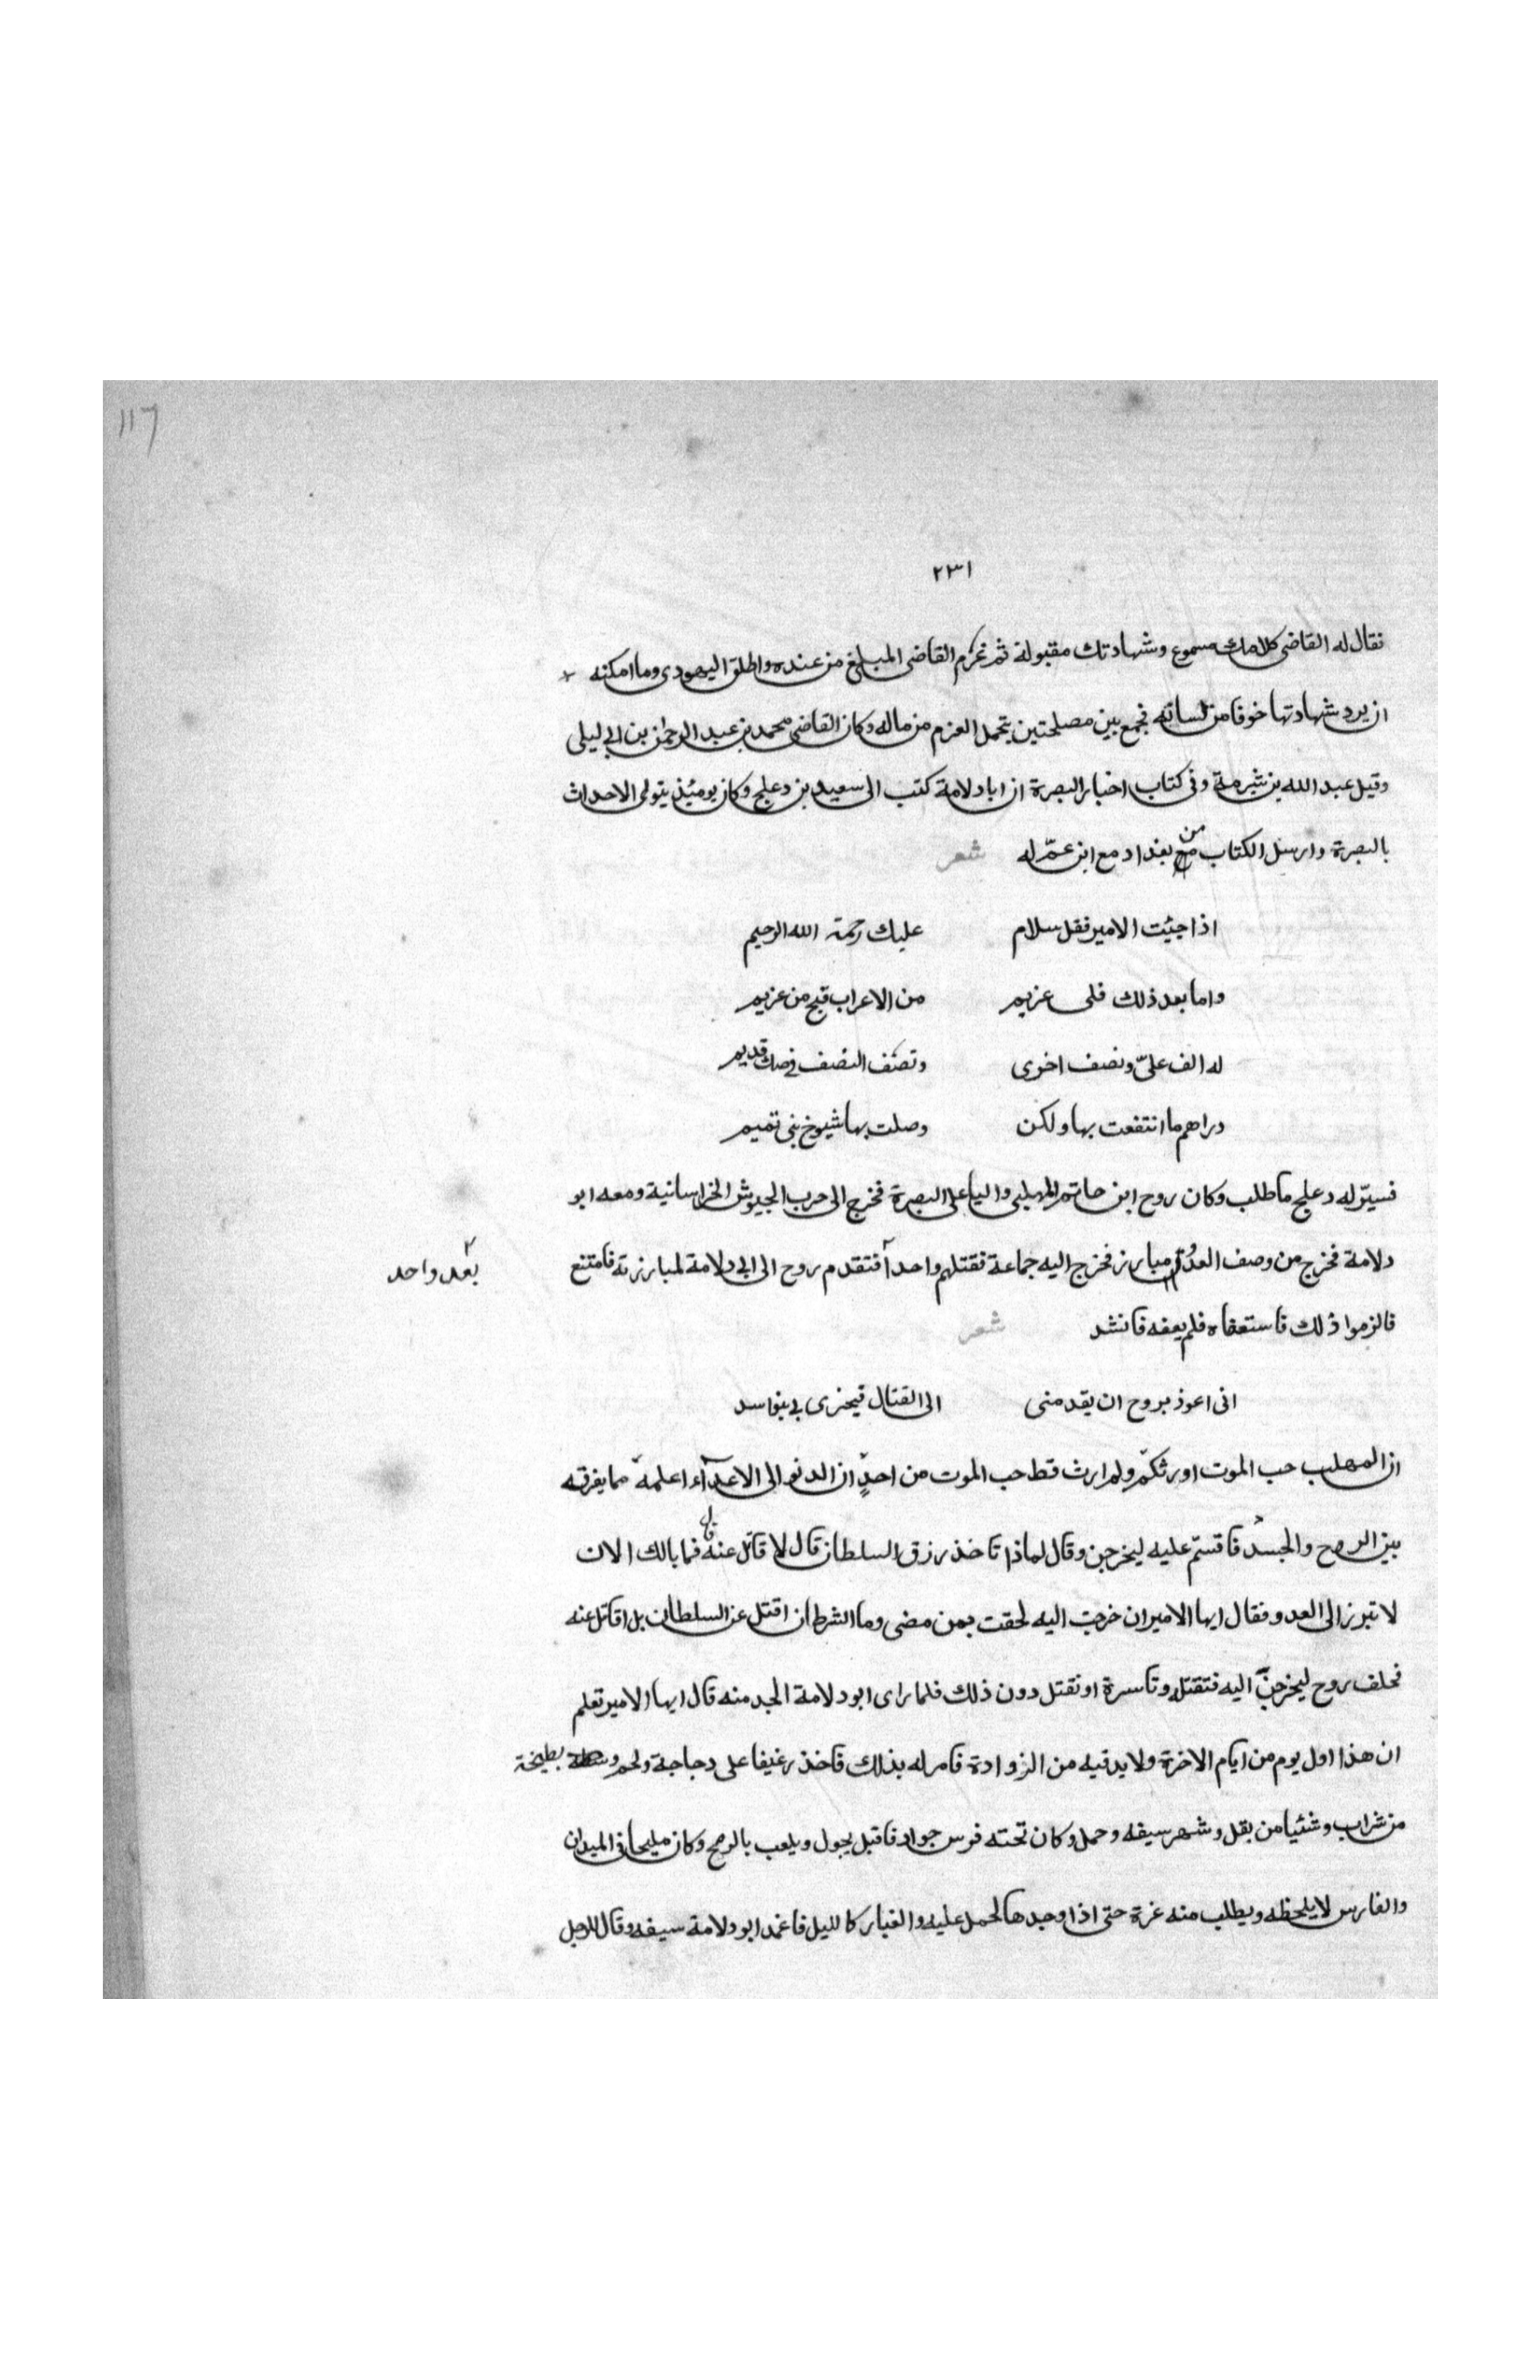 117
٢٣١
فقال له القاضى كلامك مسموع وشهادتك مقبولة ثم غرم القاضى المبلغ من عنده واطلق اليهودى وما امكنه
ان يرد شهادتها خوفا من لسانه فجمع بين مصلحتين بتحمل الغرم من ماله وكان القاضى محمد بن عبد الرحمن بن ابى ليلى
وقيل عبد الله بن شبرمة وفى كتاب اخبار البصرة ان ابا دلامة كتب الى سعيد بن دعلج وكان يومئذ يتولى الاحداث
بالبصرة وارسل الكتاب من بغداد مع ابن عمّ له شعر
اذا جئت الامير فقل سلام عليك رحمة الله الرحيم
واما بعد ذلك فلى غريم من الاعراب قبح من غريم
له الف علىّ ونصف اخرى ونصف النصف فى صك قديم
دراهم ما انتفعت بها ولكن وصلت بها شيوخ بنى تميم
فسيّر له دعلج ما طلب وكان روح ابن حاتم المهلبى واليا على البصرة فخرج الى حرب الجيوش الخراسانية ومعه ابو
دلامة فخرج من وصف العدو مبارز فخرج اليه جماعة فقتلهم واحدا فتقدم روح الى ابى دلامة لمبارزته فامتنع
بعد واحد
فالزموا ذلك فاستعفاه فلم يعفه فانشد شعر
انى اعوذ بروح ان يقدمنى الى القتال فيخزى بى بنو اسد
ان المهلب حب الموت اورثكم ولم ارث قط حب الموت من احدٍ ان الدنو الى الاعدآء اعلمه مما يفرقه
بين الروح والجسد فاقسم عليه ليخرجن وقال لماذا تاخذ رزق السلطان قال لا قاتل عنه قال فما بالك الان
لا تبرز الى العدو فقال ايها الامير ان خرجت اليه لحقت بمن مضى وما الشرط ان اقتل عن السلطان بل اقاتل عنه
فحلف روح ليخرجنّ اليه فتقتله وتاسرة او نقتل دون ذلك فلما راى ابو دلامة الجد منه قال ايها الامير تعلم
ان هذا اول يوم من ايام الاخرة ولا بد فيه من الزوادة فامر له بذلك فاخذ رغيفا على دجاجة ولحم وسطلة بطيخة
من شراب وشئيا من بقل وشهر سيفه وحمل وكان تحته فرس جواد فاقبل يجول ويلعب بالرمح وكان مليحا فى الميدان
والفارس لا يلحظه ويطلب منه غرة حتى اذا وجدها لحمل عليه والغبار كالليل فاغمد ابو دلامة سيفه وقال للرجل